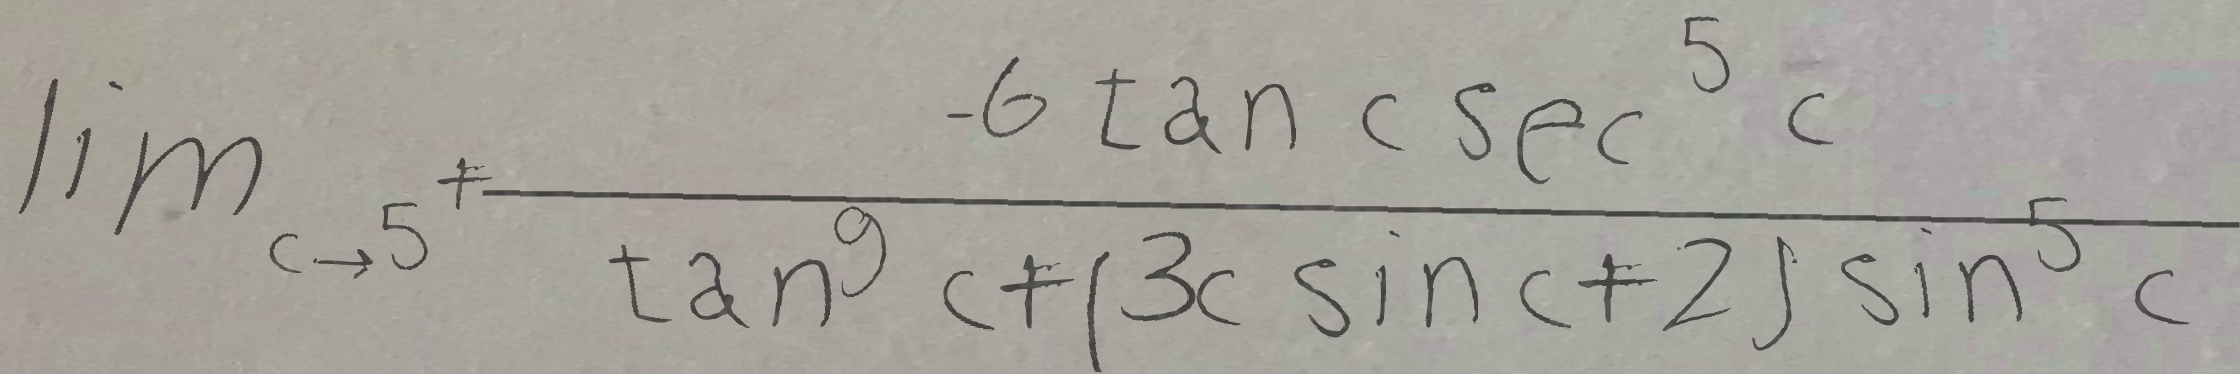 \lim_{c \to 5^+} \frac{-6 \tan c \sec^5 c}{\tan^9 c + (3c \sin c + 2) \sin^5 c}